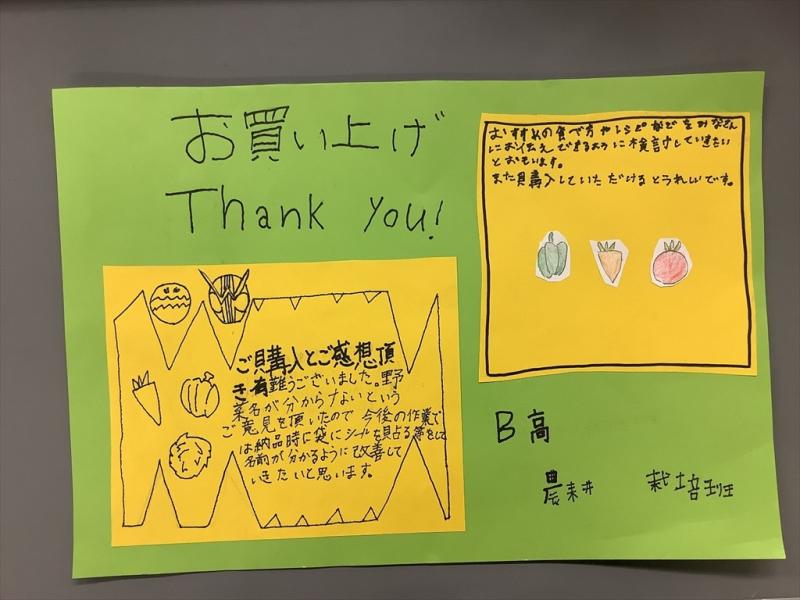 お買い上げ
Thank you!
おすすめの食べ方やレシピなどをみなさん
にお伝えできるように検討していきたい
とおもいます。
また購入していただけるとうれしいです。
ご購入とご感想頂
き有難うございました。野
菜名が分からないという
ご意見を頂いたので今後の作業で
は納品時に袋にシールを貼る等をして
名前が分かるように改善して
いきたいと思います。
B高
農耕 栽培班